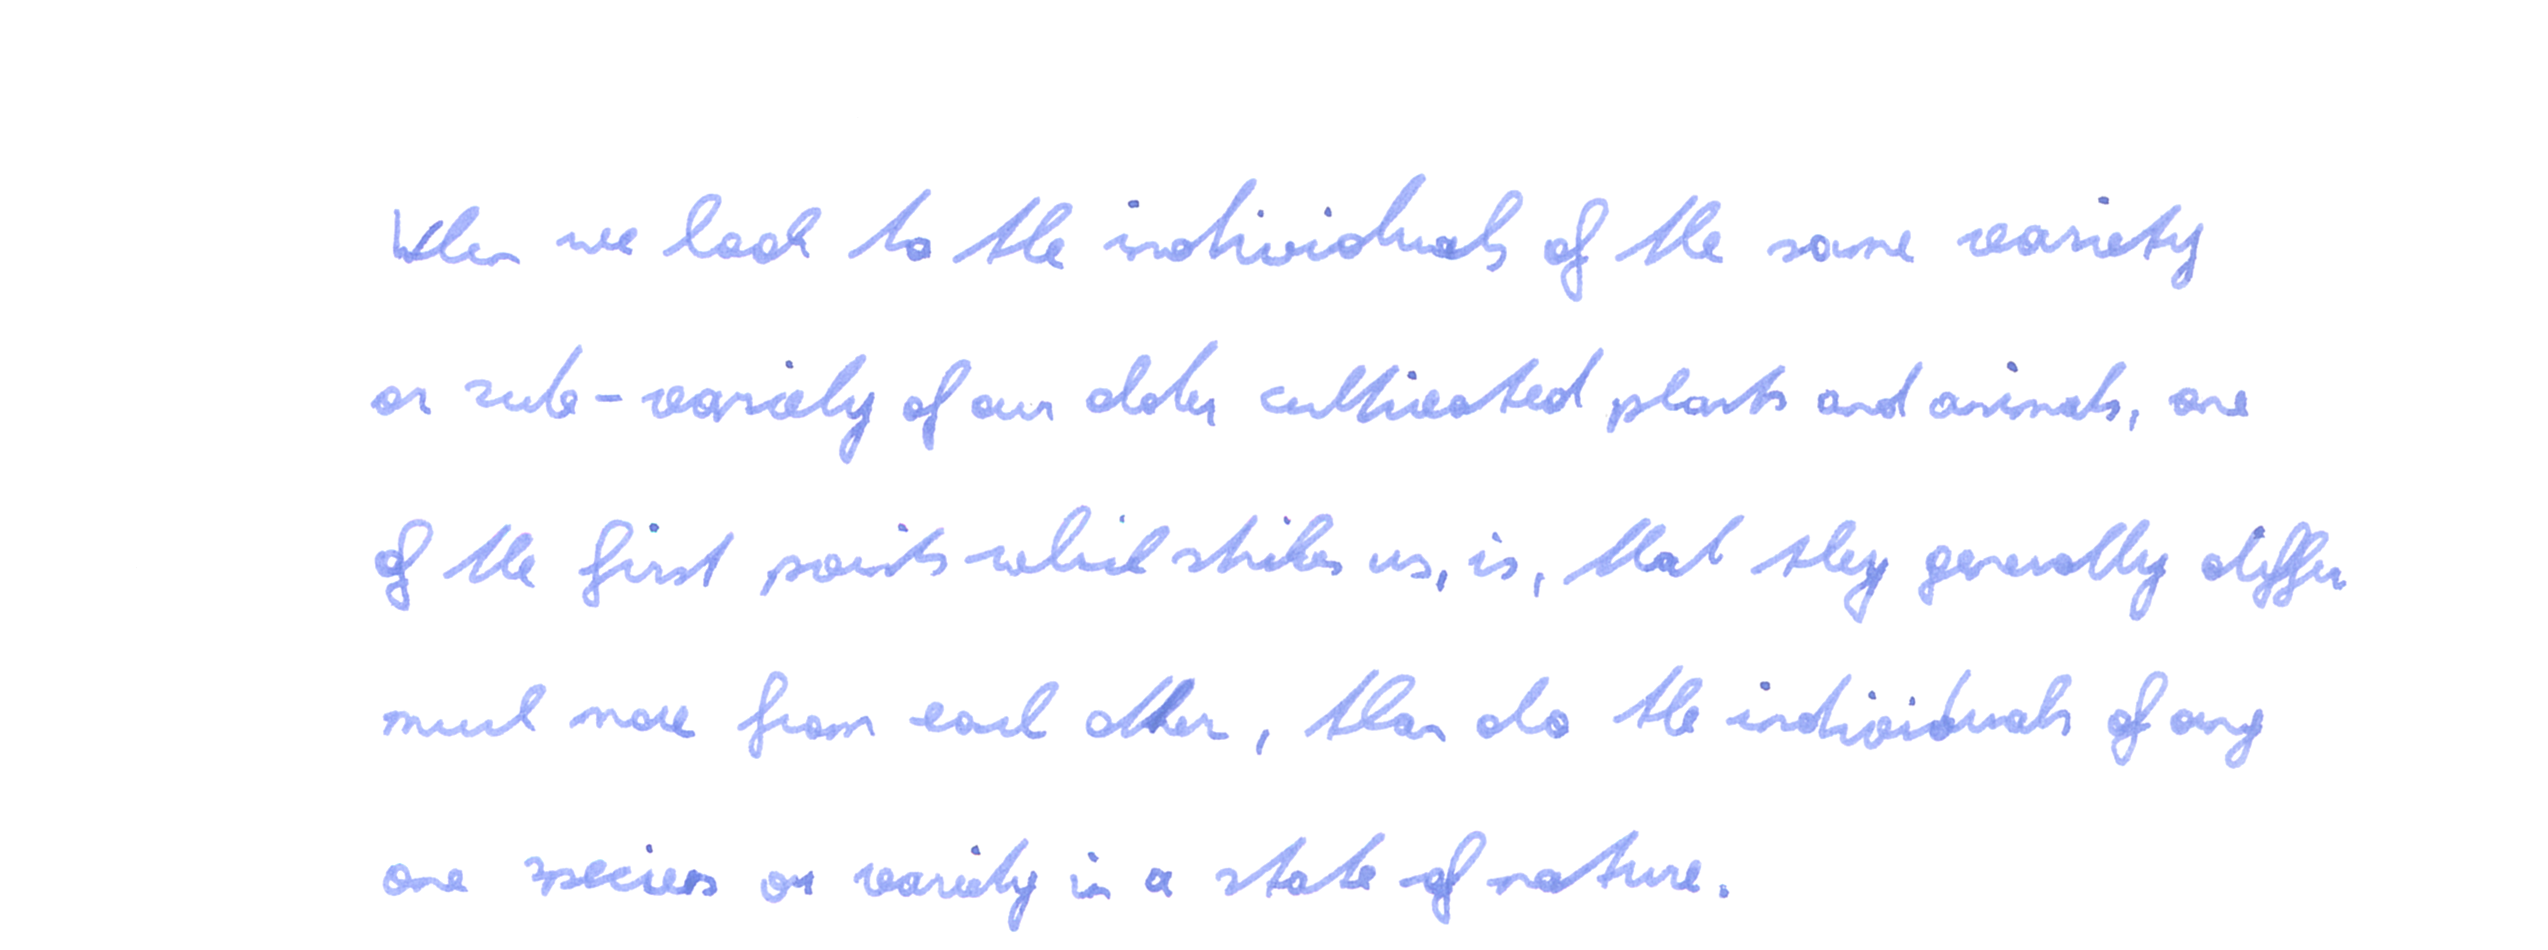 When we look to the individuals of the same variety
or sub-variety of our older cultivated plants and animals, one
of the first points which strikes us, is, that they generally differ
much more from each other, than do the individuals of any
one species or variety in a state of nature.